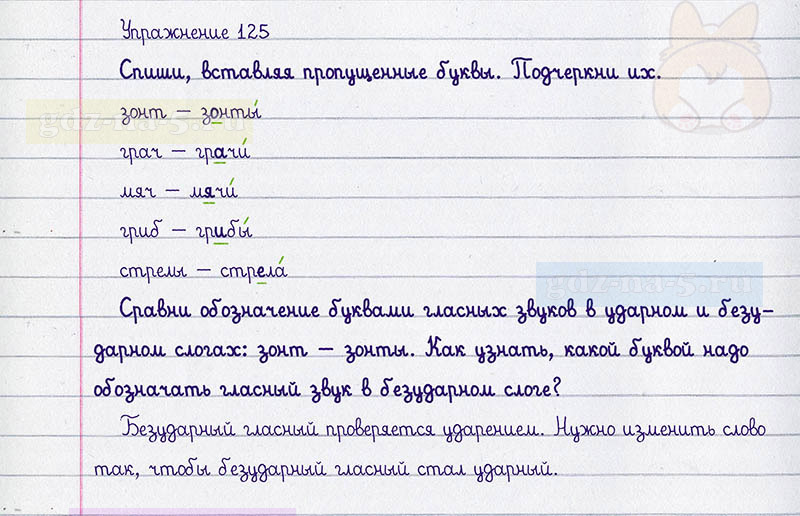 Упражнение 125
Спиши, вставляя пропущенные буквы. Подчеркни их.
зонт – зонты́
gdz-na-5.ru
грач – грачи́
мяч – мячи́
гриб – грибы́
стрелы – стрела́
gdz-na-5.ru
Сравни обозначение буквами гласных звуков в ударном и безу-
дарном слогах: зонт – зонты. Как узнать, какой буквой надо
обозначать гласный звук в безударном слоге?
Безударный гласный проверяется ударением. Нужно изменить слово
так, чтобы безударный гласный стал ударный.